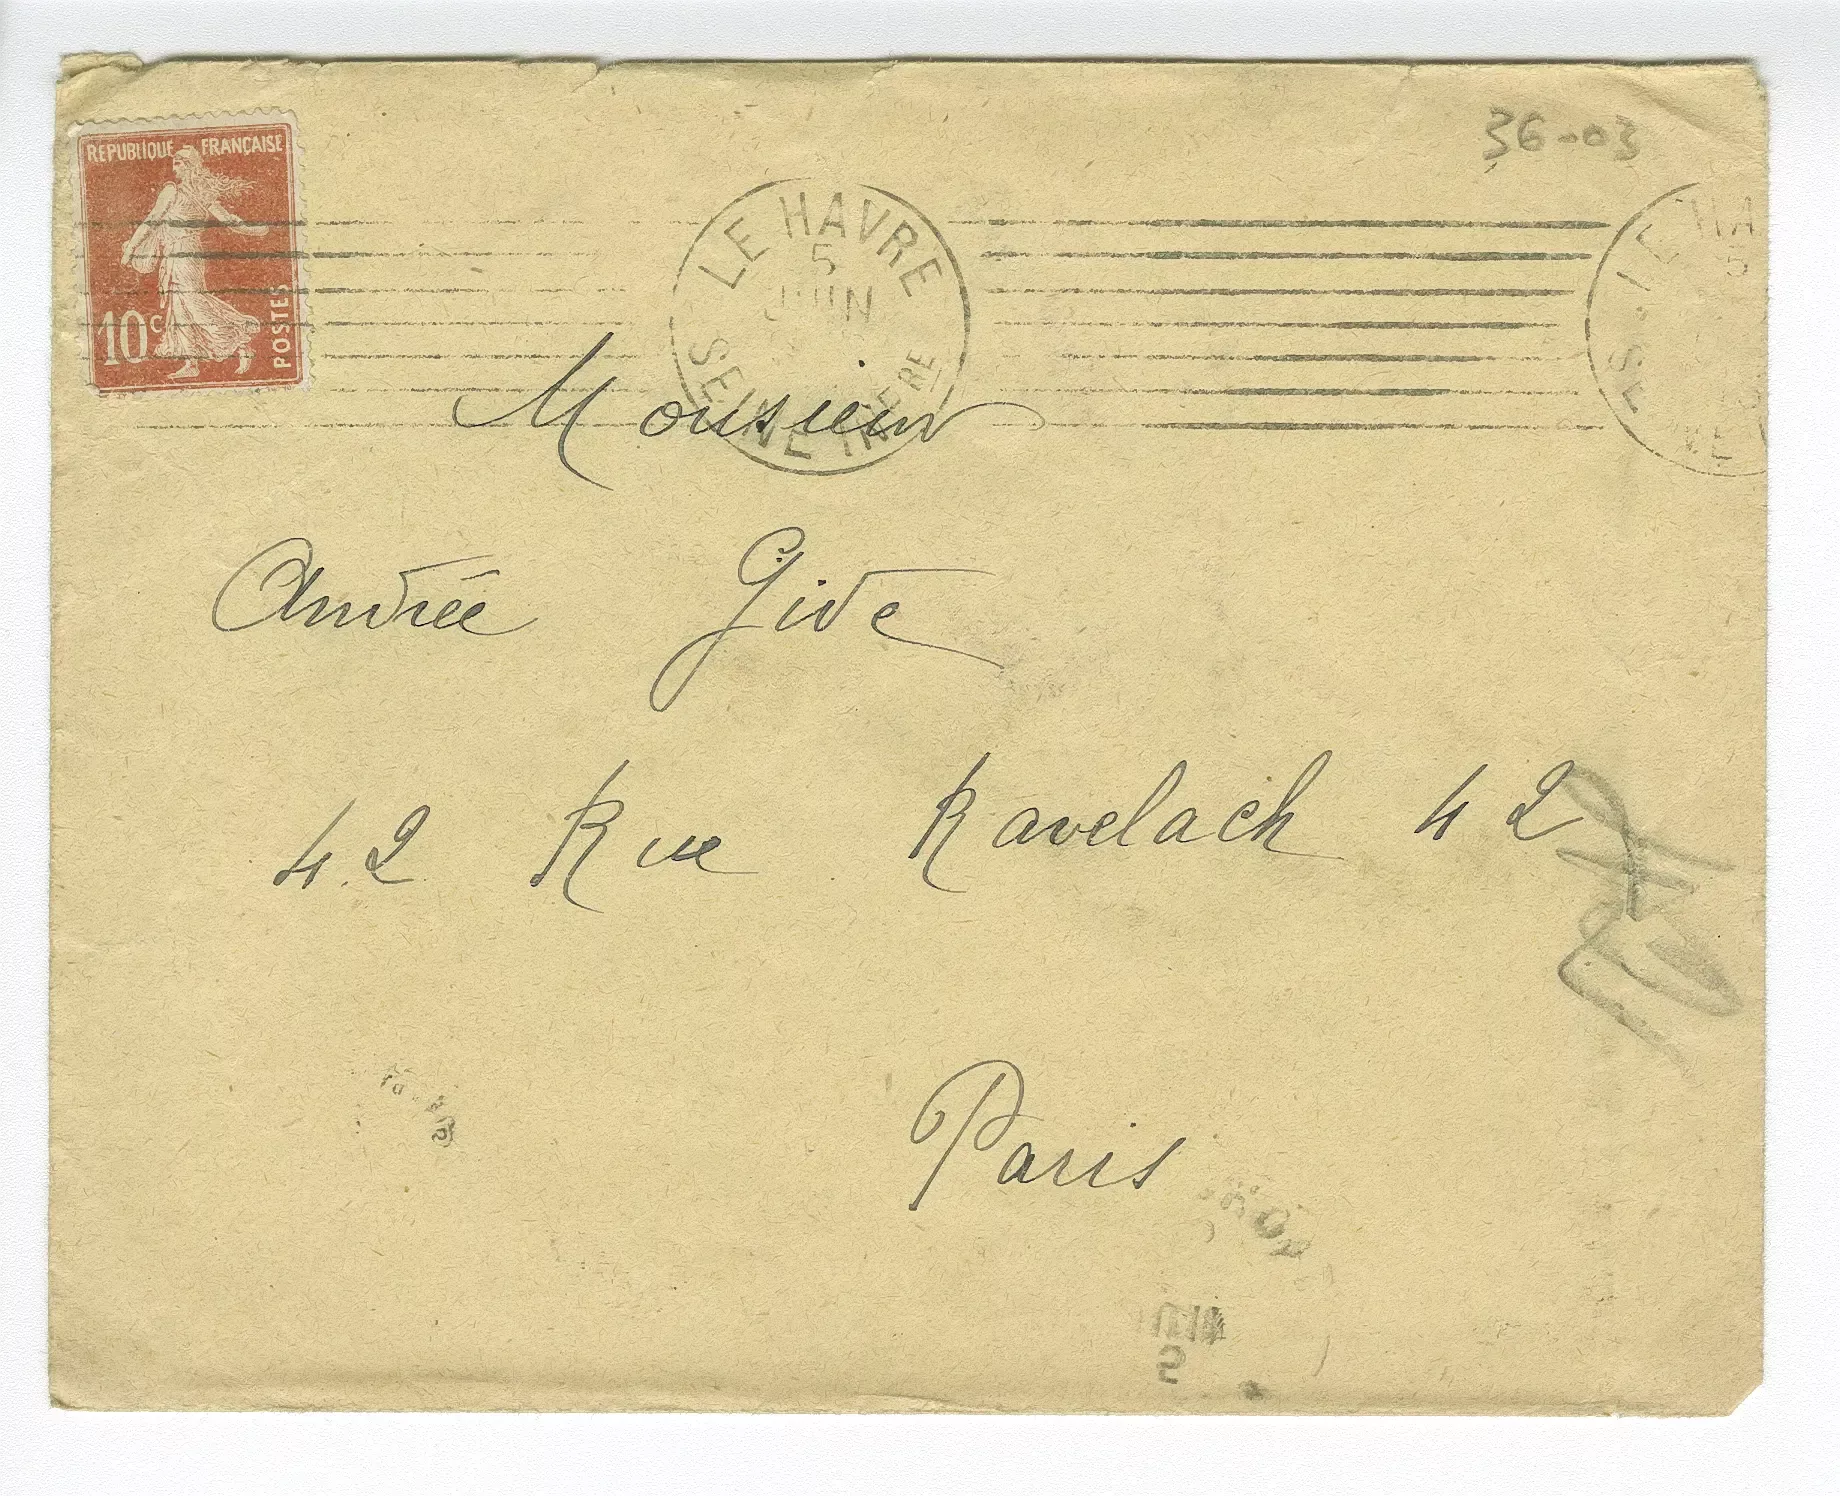 36-03
REPUBLIQUE FRANÇAISE
10c POSTES
LE HAVRE
5
JUIN
SEINE INFERE
Monsieur
Andrée Gide
42 Rue Ravelach 42
Paris